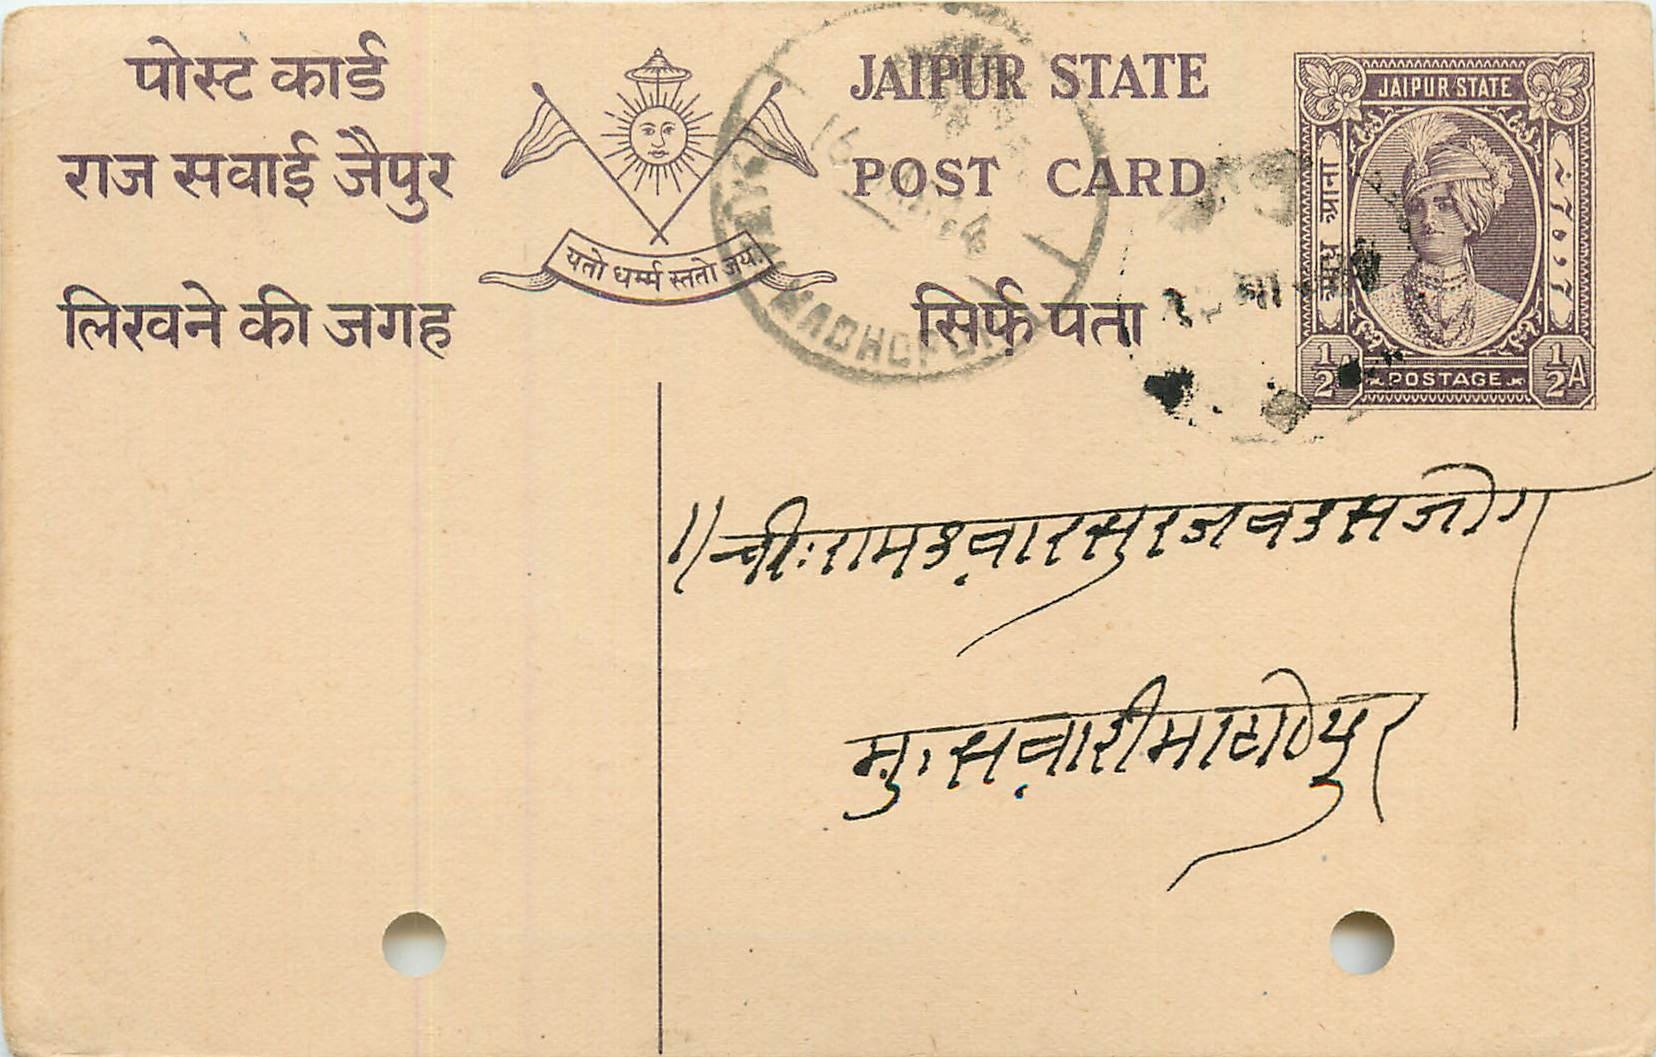 पोस्ट कार्ड
राज सवाई जैपुर
लिखने की जगह
यतो धर्म्म स्ततो जय:
JAIPUR STATE
POST CARD
सिर्फ़ पता
JAIPUR STATE
आध आना
½A
POSTAGE
½A
MADHOPUR
16
॥ची:रामडवारसुरजवडसजोग
मु:सवारीमाटोपुर